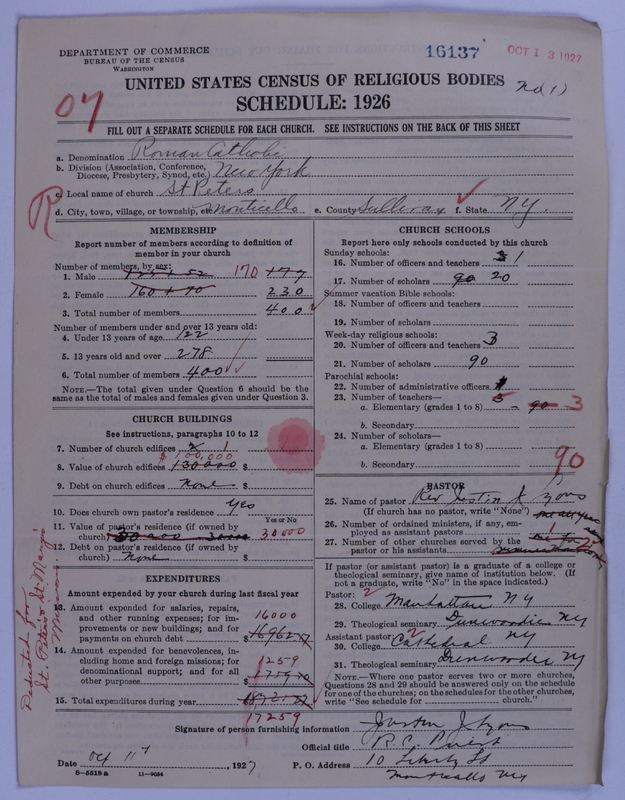 DEPARTMENT OF COMMERCE
BUREAU OF THE CENSUS
WASHINGTON
16137
OCT 13 1927
UNITED STATES CENSUS OF RELIGIOUS BODIES
SCHEDULE: 1926
FILL OUT A SEPARATE SCHEDULE FOR EACH CHURCH. SEE INSTRUCTIONS ON THE BACK OF THIS SHEET
a. Denomination Roman Catholic
b. Division (Association, Conference, Diocese, Presbytery, Synod, etc.) New York
c. Local name of church St Peters
d. City, town, village, or township, etc. Monticello e. County Sullivan f. State NY.
R
MEMBERSHIP
Report number of members according to definition of
member in your church
Number of members, by sex:
1. Male 170 177
2. Female 160 + 70 230
3. Total number of members 400
Number of members under and over 13 years old:
4. Under 13 years of age 122
5. 13 years old and over 278
6. Total number of members 400
NOTE.—The total given under Question 6 should be the
same as the total of males and females given under Question 3.
CHURCH BUILDINGS
See instructions, paragraphs 10 to 12
7. Number of church edifices 2 1
$100,000
8. Value of church edifices 130000 $
9. Debt on church edifices None $
10. Does church own pastor's residence? Yes
Yes or No
11. Value of pastor's residence (if owned by
church) 30000
12. Debt on pastor's residence (if owned by
church) None $
EXPENDITURES
Amount expended by your church during last fiscal year
13. Amount expended for salaries, repairs,
and other running expenses; for im-
provements or new buildings; and for
payments on church debt $
16000
14. Amount expended for benevolences, in-
cluding home and foreign missions; for
denominational support; and for all
other purposes $
1259
15. Total expenditures during year
17259
CHURCH SCHOOLS
Report here only schools conducted by this church
Sunday schools:
16. Number of officers and teachers 3 1
17. Number of scholars 90 20
Summer vacation Bible schools:
18. Number of officers and teachers
19. Number of scholars
Week-day religious schools:
20. Number of officers and teachers 3
21. Number of scholars 90
Parochial schools:
22. Number of administrative officers 1
23. Number of teachers—
a. Elementary (grades 1 to 8) 3 – 90 3
b. Secondary
24. Number of scholars—
a. Elementary (grades 1 to 8)
b. Secondary
90
PASTOR
25. Name of pastor Rev Justin J Lyons
(If church has no pastor, write "None")
26. Number of ordained ministers, if any, em-
ployed as assistant pastors 1
27. Number of other churches served by the
pastor or his assistants
If pastor (or assistant pastor) is a graduate of a college or
theological seminary, give name of institution below. (If
not a graduate, write "No" in the space indicated.)
Pastor: 2
28. College Manhattan NY
29. Theological seminary Dunwoodie NY
Assistant pastor: 2
30. College Cathedral NY
31. Theological seminary Dunwoodie NY
NOTE.—Where one pastor serves two or more churches,
Questions 28 and 29 should be answered only on the schedule
for one of the churches; on the schedules for the other churches,
write "See schedule for church."
Dedicated for
St. Peter's & St. Mary's
Signature of person furnishing information Justin J Lyons
Official title R.C. Priest
Date Oct 11, 1927 P. O. Address 10 Liberty St
Monticello NY
8—5518a 11—9084